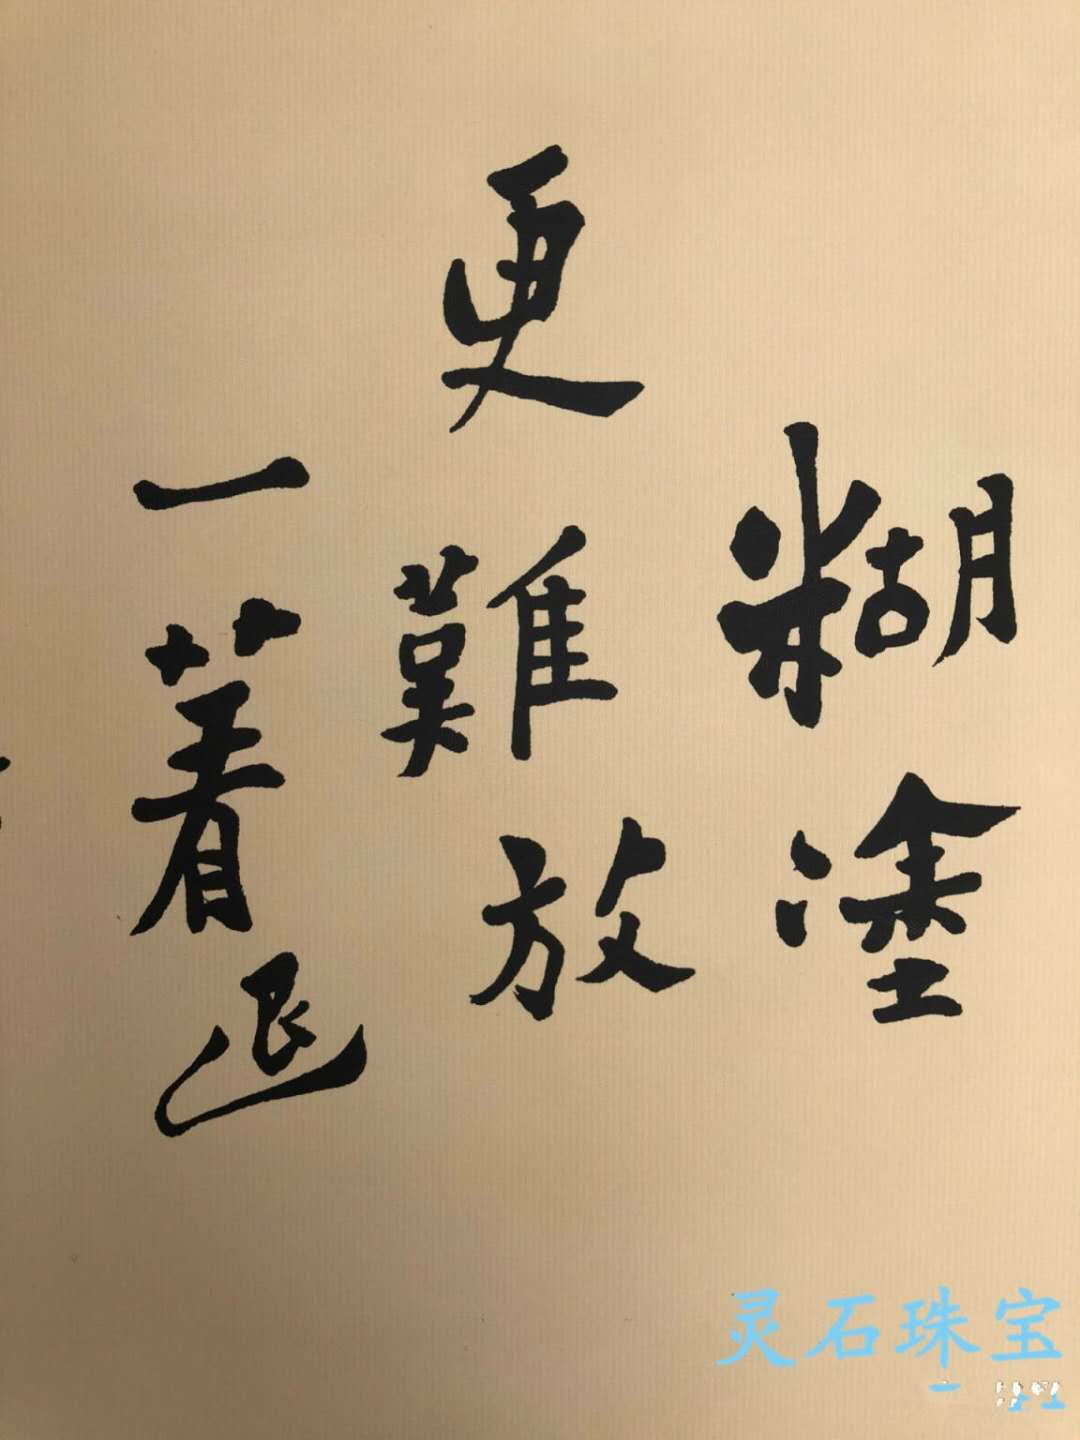 糊塗
更難放
一著退
灵石珠宝